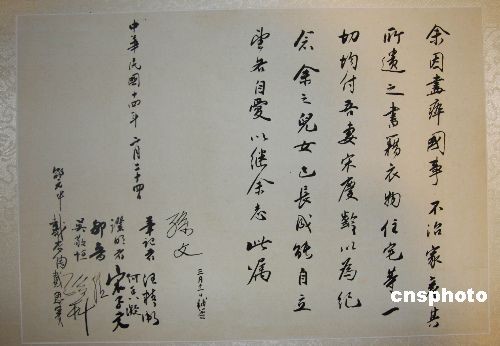 余因盡瘁國事 不治家產其
所遺之書籍衣物住宅等一
切均付吾妻宋慶齡以為紀
念余之兒女已長成能自立
望各自愛以繼余志此囑
中華民國十四年 二月二十四日
孫文
三月十一日補簽
筆記者 汪精衛
何香凝
證明者 宋子文
鄒魯 孫科
吳敬恒
戴季陶 戴恩賽
邵元冲
cnsphoto